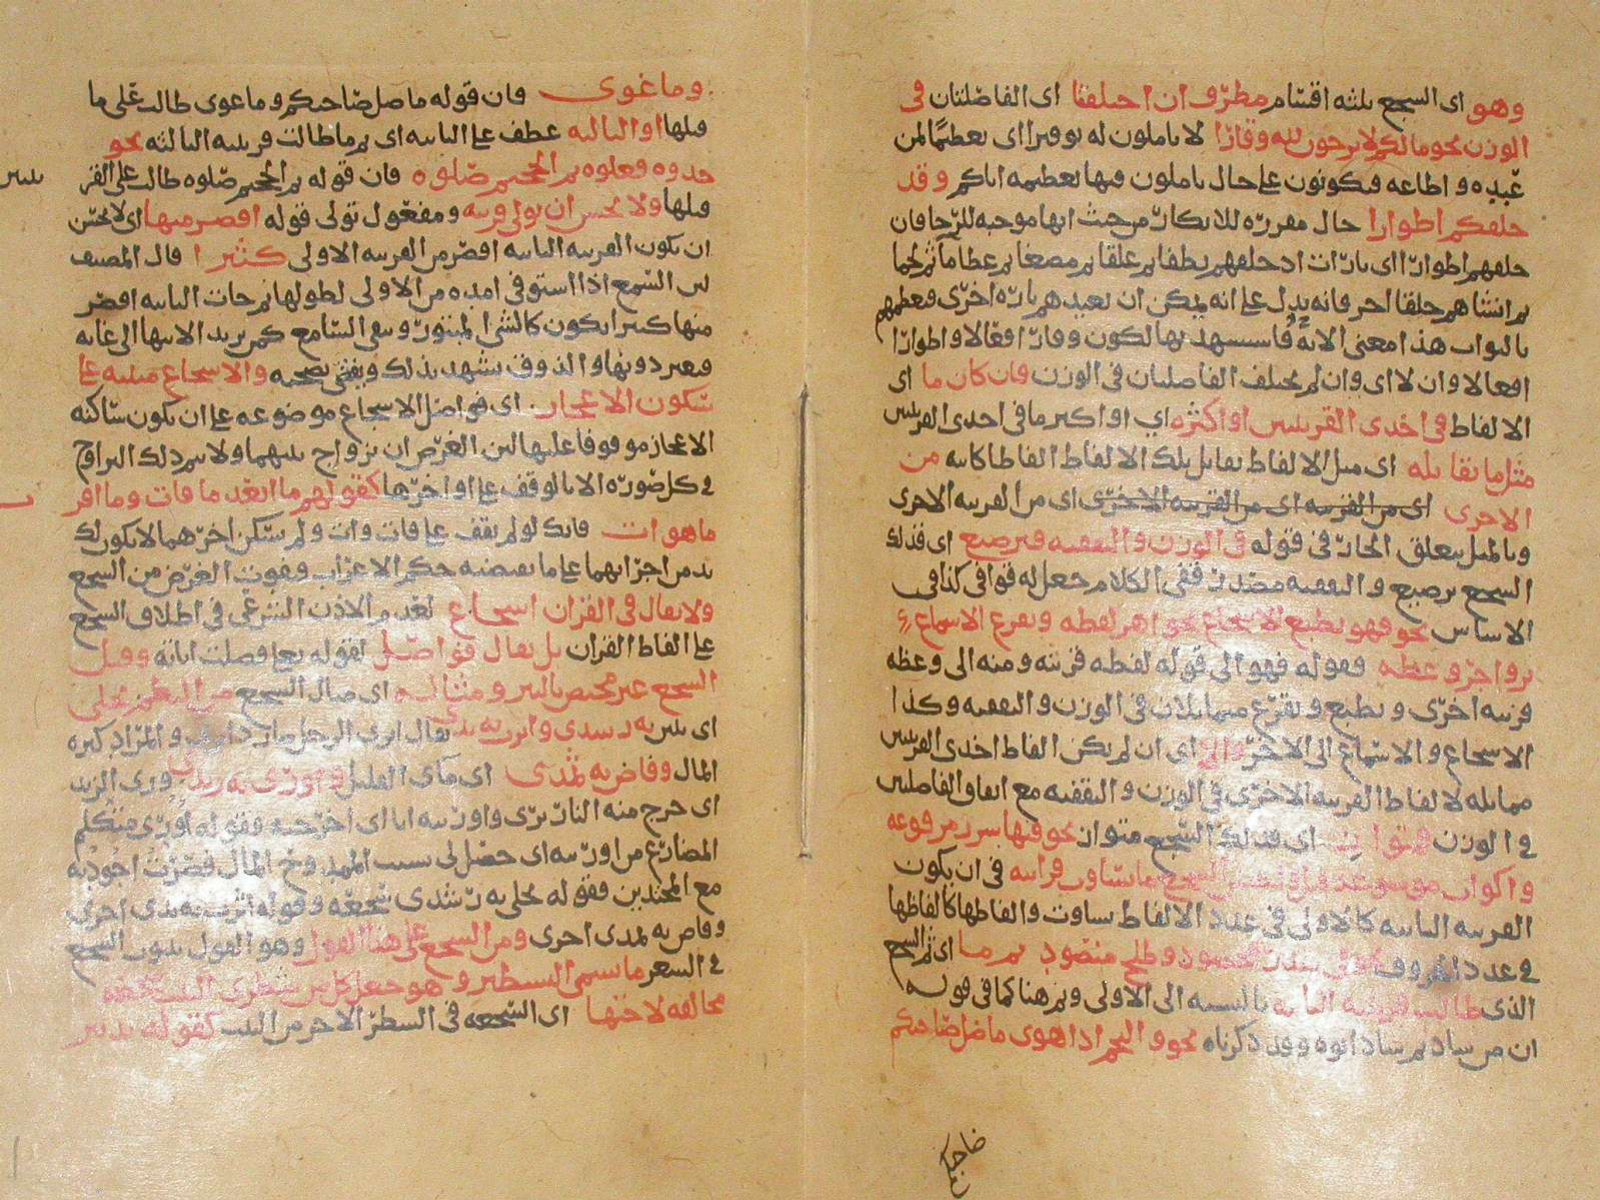 وهو اى السجع ثلثة اقسام مطرف ان اختلفتا اى الفاصلتان فى
الوزن نحو مالكم لا ترجون لله وقارا لا تاملون له توقيرا اى تعظيما لمن
عبده و اطاعه فتكونون على حال تاملون فيها تعظيمه اياكم وقد
خلقكم اطوارا حال مقررة للانكار من حيث انها موجبة للرجا فان
خلقهم اطوارا اى تارات اذ خلقهم نطفا ثم علقا ثم مضغا ثم عظاما ثم لحما
ثم انشاهم خلقا اخر فانه يدل على انه يمكن ان يعيدهم تارة اخرى فيعظمهم
بالثواب هذا معنى الآية فاستشهد بها لكون وقارا فعالا و اطوارا
افعالا و ان لا اى وان لم يختلف الفاصلتان فى الوزن فان كان ما اى
الالفاظ فى احدى القرينتين او اكثره اي او اكثر ما فى احدى القرينتين
مثل ما يقابله اى مثل الالفاظ تقابل تلك الالفاظ الفاظا كاينة من
الاخرى اى من القرينه اى من القرينه الاخرى اى من القرينه الاخرى
وبالمثل يتعلق الجار فى قوله فى الوزن والتقفيه فترصيع اى فذلك
السجع ترصيع و التقفيه مصدر قفى الكلام جعل له قوافى كذا فى
الاساس نحو فهو يطبع الاسجاع بجواهر لفظه ويقرع الاسماع
بزواجر وعظه فقوله فهو الى قوله لفظه قرينه ومنه الى وعظه
قرينه اخرى و يطبع و يقرع متماثلان فى الوزن و التقفيه وكذا
الاسجاع و الاسماع الى الاخر والا اى ان لم يكن الفاظ احدى القرينتين
مماثله لالفاظ القرينه الاخرى فى الوزن و التقفيه مع اتفاق الفاصلتين
فى الوزن فمتوازن اى فذلك السجع متوازن نحو فيها سرر مرفوعه
واكواب موضوعه قيل واحسن السجع ما تساوت قراينه فى ان يكون
القرينه الثانيه كالاولى فى عدد الالفاظ تساوت والفاظها كالفاظها
فى عدد الحروف نحو فى سدر مخضود و طلح منضود ثم ما اى ثم السجع
الذى طالت قرينته الثانيه بالنسبه الى الاولى وثم هنا كما فى قوله
ان من ساد ثم ساد ابوه وقد ذكرناه نحو و النجم اذا هوى ما ضل صاحبكم
وما غوى فان قوله ما ضل صاحبكم وما غوى طالت على ما
قبلها او الثالثه عطف على الثانيه اى ثم ما طالت قرينته الثالثه نحو
خذوه فغلوه ثم الجحيم صلوه فان قوله ثم الجحيم صلوه طالت على القر
قبلها ولا يحسن ان يولى قرينه ومفعول تولى قوله اقصر منها اى لا يحسن
ان تكون القرينه الثانيه اقصر من القرينه الاولى كثيرا قال المصنف
لان السمع اذا استوفى امده من الاولى لطولها ثم جات الثانيه اقصر
منها كثيرا يكون كالشئ المبتور و يبقى السامع كمن يريد الانتها الى غاية
فيعثر دونها والذوق يشهد بذلك ويقضى بصحته والاسجاع مبنيه على
سكون الاعجاز اى فى اصل الاسجاع موضوعه على ان تكون ساكنه
الاعجاز موقوفا عليها لان الغرض ان يزواج بينهما ولا يتم ذلك التزاوج
فى كل صورة الا بالوقف على اواخرها كقولهم ما ابعد ما فات وما اقر
ما هو ات فانك لو لم تقف على فات وات و لم تسكن اخرهما لا يكون لك
بد من اجرائهما على ما يقتضيه حكم الاعراب ويفوت الغرض من السجع
ولا يقال فى القران اسجاع لعدم الاذن الشرعى فى اطلاق السجع
على الفاظ القران بل يقال فواصل لقوله تعالى فصلت اياته وقيل
السجع غير مختص بالنثر ومثاله اى مثال السجع من النظم تجلى
اى تبين به رشدى واثرت به يدى يقال اثرى الرجل صار ذا ثروة والمراد كثرة
المال وفاض به ثمدى اى ماى القليل واورى به زندى ورى الزند
اى خرج منه النار يرى واوريته انا اى اخرجته فقوله اورى متكلم
المضارع من اوريته اى حصل لى بسبب الممدوح المال فصرت اجود به
مع المجتدين فقوله تجلى به رشدى سجعه وقوله اثرت به يدى اخرى
وفاض به ثمدى اخرى ومن السجع على هذا القول وهو القول بدون السجع
فى الشعر ما يسمى التشطير وهو جعل كل من شطرى البيت سجعه
مخالفه لاختها اى السجعه فى الشطر الاخر من البيت كقوله تدبير
صاحبكم